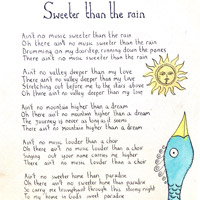 Sweeter than the rain
Ain't no music sweeter than the rain
Oh there ain't no music sweeter than the rain
Drumming on my doorstep, running down the panes
There ain't no music sweeter than the rain
Ain't no valley deeper than my love
There ain't no valley deeper than my love
Stretching out before me to the stars above
Oh there ain't no valley deeper than my love
Ain't no mountain higher than a dream
Oh there ain't no mountain higher than a dream
The journey is never as long as it seems
There ain't no mountain higher than a dream
Ain't no music louder than a choir
Oh there ain't no music louder than a choir
Singing out your name carries me higher
There ain't no music louder than a choir
Ain't no sweeter home than paradise
Oh there ain't no sweeter home than paradise
To carry me throughout through this stormy night
To my home in God's sweet paradise